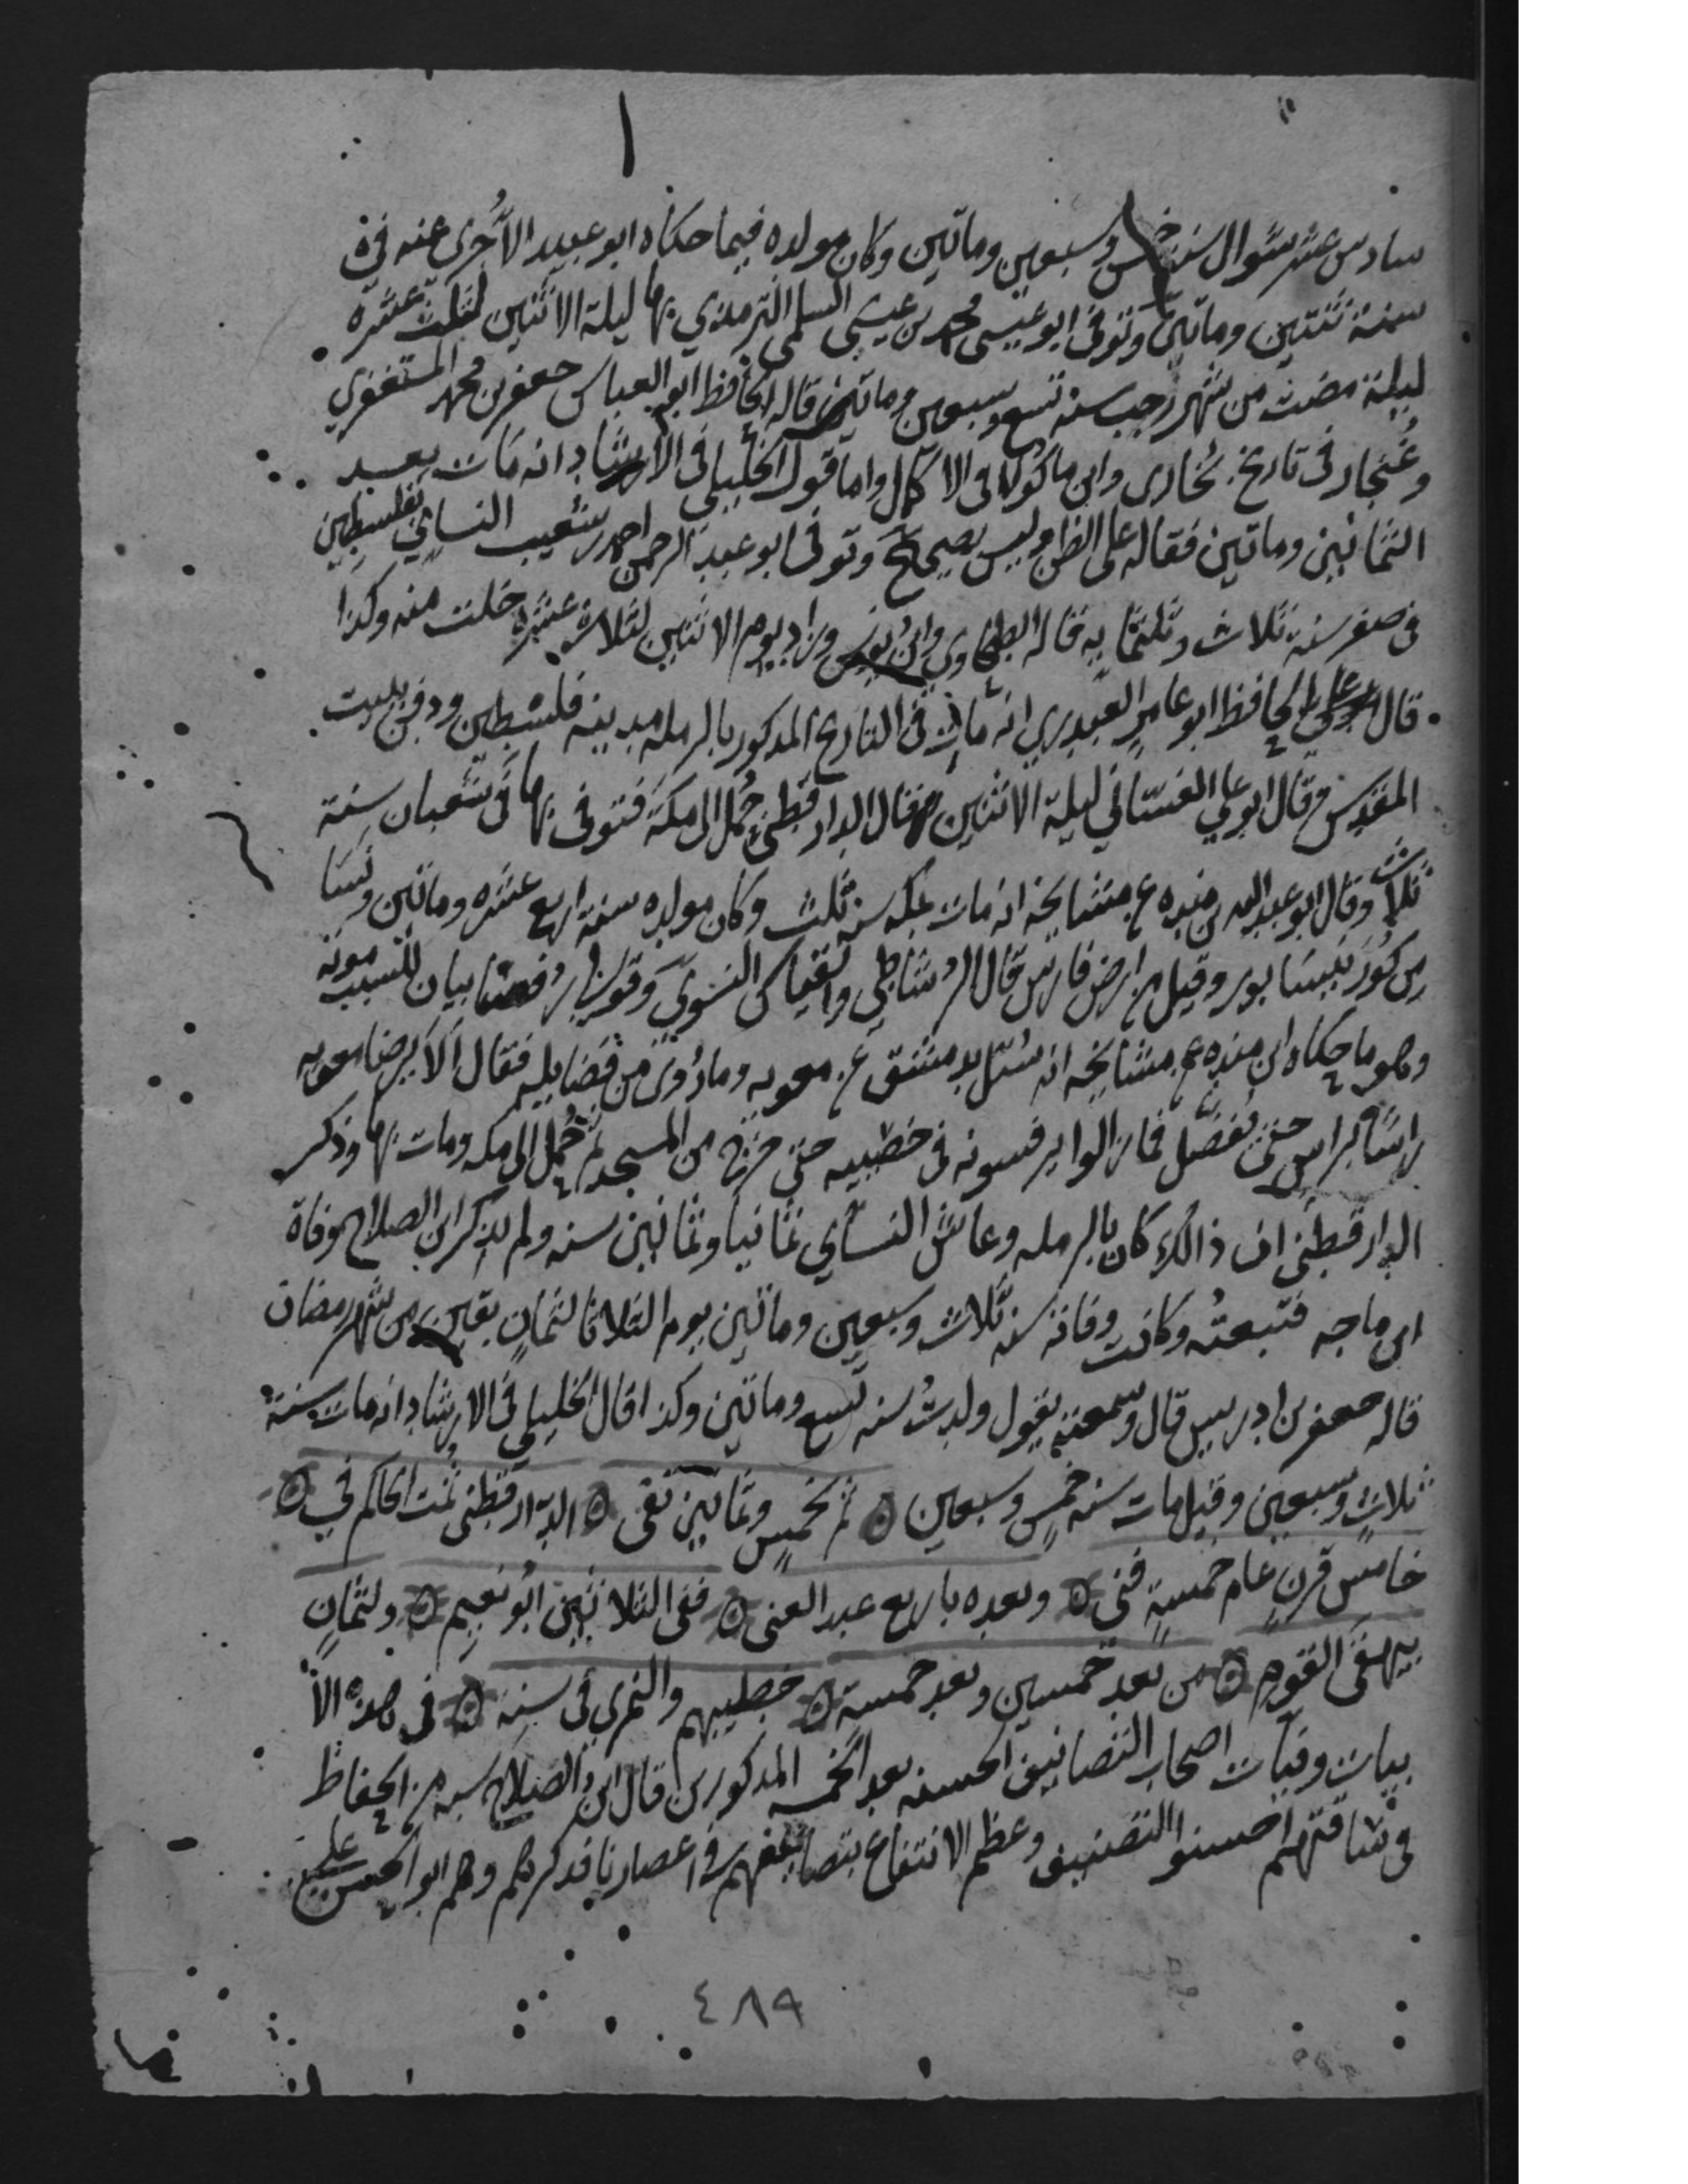 سادس عشر شوال سنة خمس وسبعين ومأتين وكان مولده فيما حكاه ابو عبيد الآجُرى عنه فى
سنة ثنتين ومأتين وتوفى ابو عيسى محمد بن عيسى السلمى الترمذي بها ليلة الاثنين لثلث عشره
ليلة مضت من شهر رجب سنة تسع وسبعين ومأتين قاله الحافظ ابو العباس جعفر بن محمد المستغفري
وغُنجار فى تاريخ بُخارى وابن ماكولا فى الاكمال واما قول الخليلى فى الارشاد انه مات بعد
الثمانين ومأتين فقاله على الظن وليس بصحيح وتوفى ابو عبد الرحمن احمد بن شعيب النساي بفلسطين
فى صفر سنة ثلاث وثلثماية قاله الطحاوى وابن يونس وزاد يوم الاثنين لثلاث عشره خلت منه وكذا
قال الحافظ ابو عامر العبدري انه مات فى التاريخ المذكور بالرمله مدينة فلسطين ودفن ببيت
المقدس وقال ابو علي الغسّاني ليلة الاثنين وقال الدارقطنى حُمل الى مكة فتوفى بها فى شعبان سنة
ثلاث وقال ابو عبد الله بن منده عن مشايخه انه مات بمكه سنة ثلث وكان مولده سنة اربع عشره ومأتين ونسَا
من كُوَر نيسابور وقيل من ارض فارس قال الرشاطي والقياس النسوى وقولى رفسًا بيان لسبب موته
وهو ما حكاه ابن منده عن مشايخه انه سُئل بدمشق عن معويه وما رُوى من فضايله فقال الا يرضا معويه
راسًا براس حتى يُفضّل فما زالوا يرفسونه فى خصييه حتى خرج من المسجد ثم حُمل الى مكه ومات بها وذكر
الدارقطنى ان ذالك كان بالرمله وعاش النسأي ثمانيا وثمانين سنه ولم يذكر ابن الصلاح وفاة
ابن ماجه فتبعتُه وكانت وفاته سنه ثلاث وسبعين ومأتين يوم الثلاثا لثمانٍ بقين من شهر رمضان
قاله جعفر بن ادريس قال وسمعته يقول ولدتُ سنه تسع ومأتين وكذا قال الخليلى فى الارشاد انه مات سنة
ثلاثٍ وسبعين وقيل مات سنه خمسٍ وسبعين ۞ ثم لخمسٍ وثمانين تفى ۞ الدّارقطنى ثمت الحاكم في ۞
خامس قرنٍ عام خمسةٍ فنى ۞ وبعده باربع عبد الغنى ۞ ففى الثلاثين ابُو نعيم ۞ ولثمانٍ
بيهقى القوم ۞ من بعد خمسين وبعد خمسة ۞ خطيبهم والنمري فى سنة ۞ فى هذه الأ
بيات وفيات اصحاب التصانيف الحسنه بعد الخمسه المذكورين قال ابن الصلاح سبعه من الحفاظ
فى ساقتهم احسنوا التصنيف وعظم الانتفاع بتصانيفهم فى اعصارنا فذكرهم وهم ابو الحسن على
٤٨٩